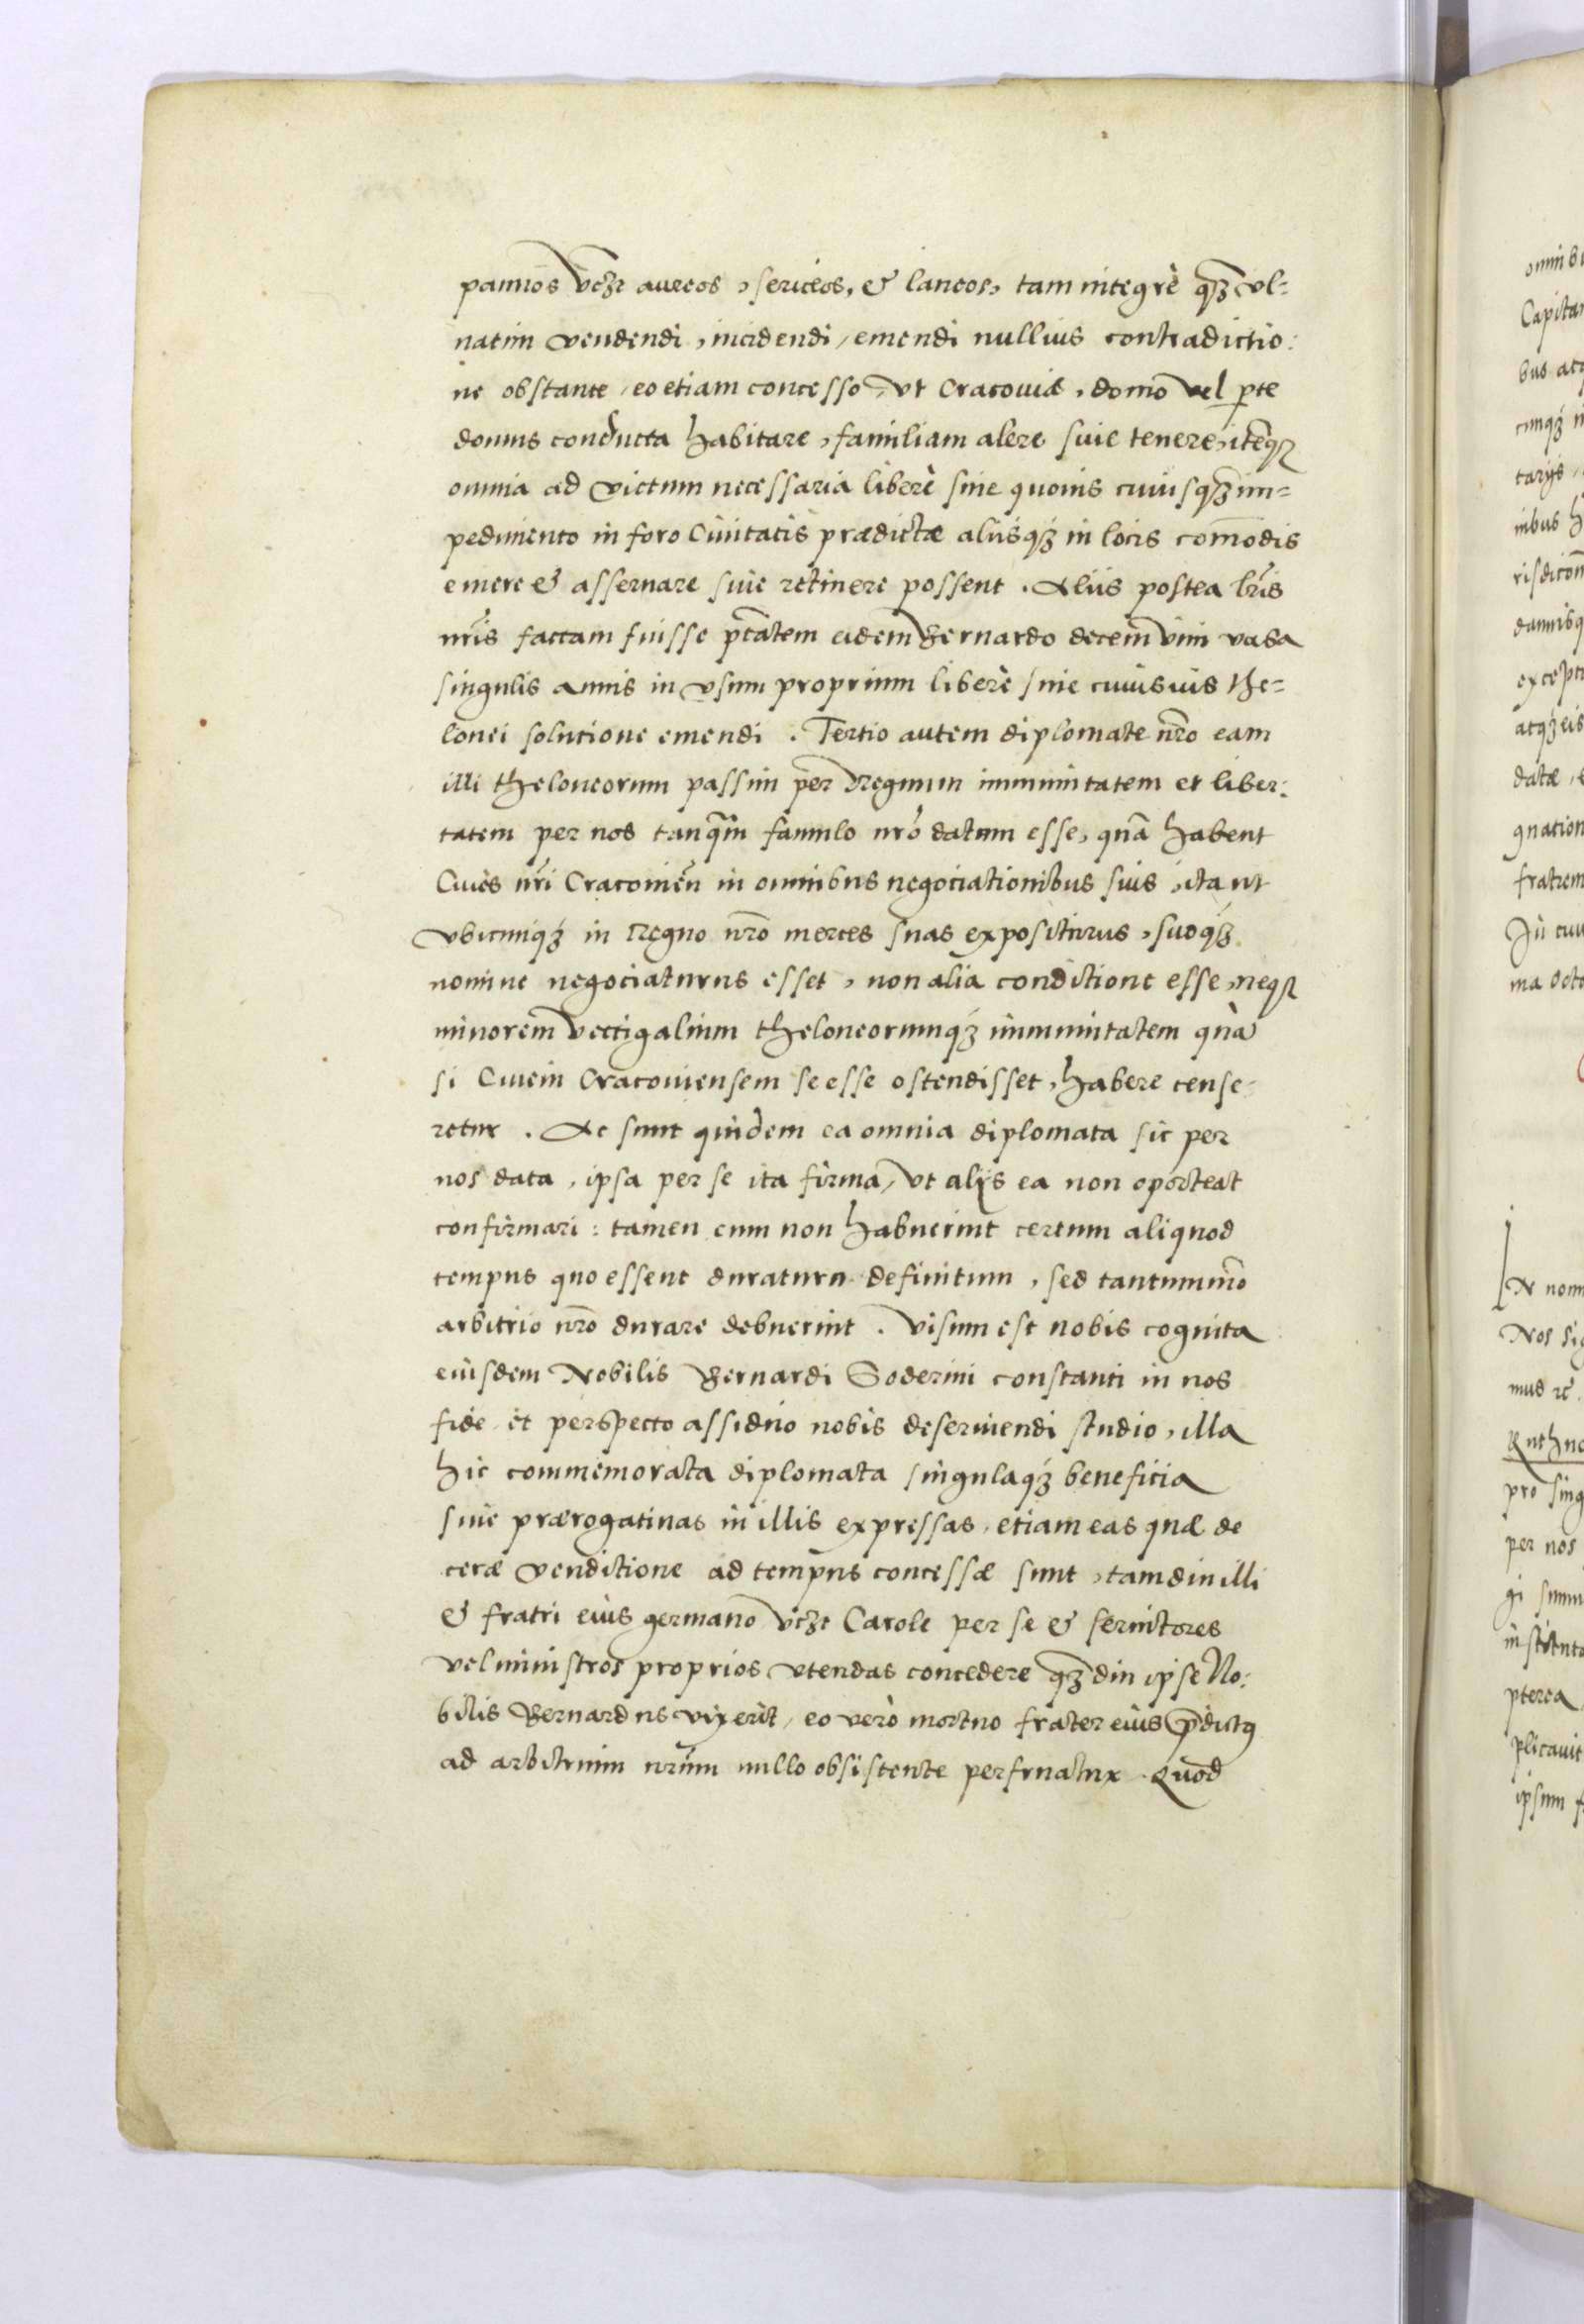 pannos vc̃ȝt aureos, sericeos, & laneos, tam integrè qȝ̃ vl=
natim vendendi, incidendi, emendi nullius contradictio:
ne obstante, eo etiam concesso, vt Cracouiæ, domo vel pte
domus conducta habitare, familiam alere siue tenere, itẽqꝫ
omnia ad victum necessaria liberè sine quouis cuiusqȝ̃ im=
pedimento in foro Ciuitatis prædictæ aliisqȝ in locis com̃odis
emere & asseruare siue retinere possent. Aliis postea lr̃is
nr̃is factam fuisse ptãtem eidem Bernardo decem vini vasa
singulis annis in vsum proprium liberè sine cuiusuis the=
lonei solutione emendi. Tertio autem diplomate nr̃o eam
illi theloneorum passim per Regnum immunitatem et liber:
tatem per nos tanq̃m famulo nr̃o datam esse, quã habent
Ciues nr̃i Cracouieñ in omnibus negociationibus suis, ita ut
vbicunqȝ in Regno nr̃o merces suas expositurus, suoqȝ
nomine negociaturus esset, non alia conditione esse, neqꝫ
minorem vectigalium theloneorumqȝ immunitatem quà
si Ciuem Cracouiensem se esse ostendisset, habere cense=
retur. Ac sunt quidem ea omnia diplomata sic per
nos data, ipsa per se ita firma, vt alijs ea non oporteat
confirmari: tamen cum non habuerint certum aliquod
tempus quo essent duratura definitum, sed tantummõ
arbitrio nr̃o durare debuerint. Visum est nobis cognita
eiusdem Nobilis Bernardi Soderini constanti in nos
fide et perspecto assiduo nobis deseruiendi studio, illa
hic commemorata diplomata singulaqȝ beneficia
siue prærogatiuas in illis expressas, etiam eas quæ de
ceræ venditione ad tempus concessæ sunt, tamdiu illi
& fratri eius germano vc̃ȝt Carolo per se & seruitores
vel ministros proprios vtendas concedere qȝ̃diu ipse No:
bilis Bernardus vixerit, eo verò mortuo frater eius p̃dictꝰ
ad arbitrium nr̃um nullo obsistente perfruatur. Quod